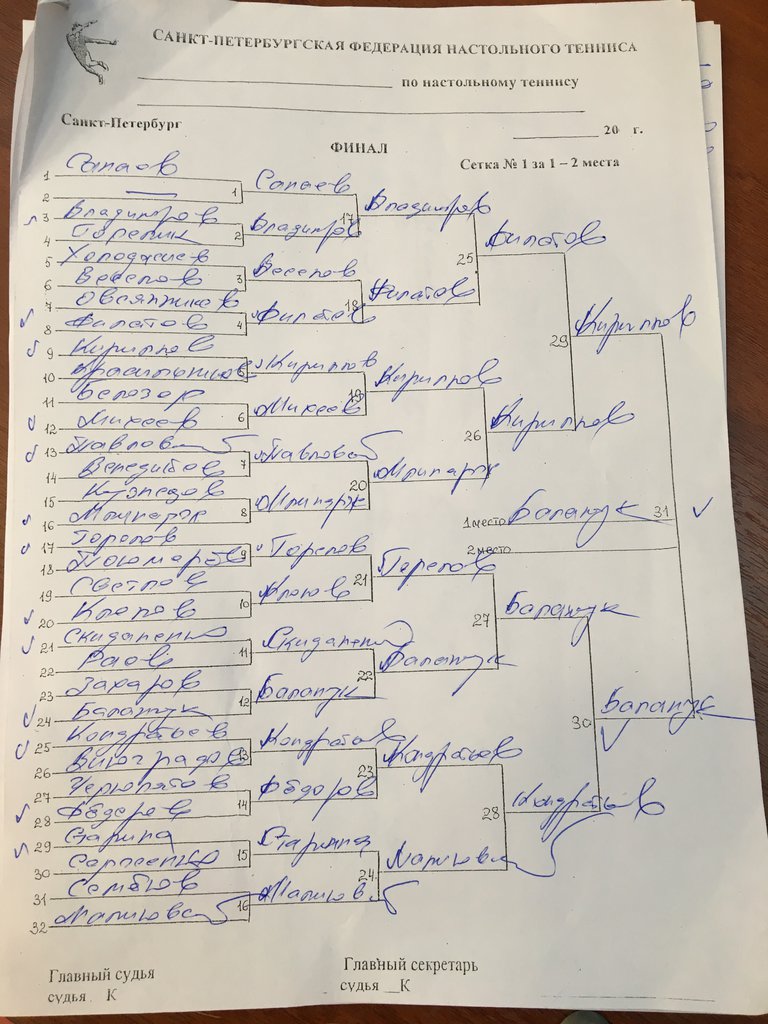 САНКТ-ПЕТЕРБУРГСКАЯ ФЕДЕРАЦИЯ НАСТОЛЬНОГО ТЕННИСА
по настольному теннису
Санкт-Петербург
20 г.
ФИНАЛ
Сетка № 1 за 1 – 2 места
1 Сапаев
2 —
1 Сапаев
3 Владимиров
4 Горелик
2 Владимиров
17 Владимиров
5 Холоджиев
6 Веселов
3 Веселов
7 Овсянников
8 Филатов
4 Филатов
18 Филатов
25 Филатов
9 Кириллов
10 Красильников
5 Кириллов
11 Белозор
12 Михеев
6 Михеев
19 Кириллов
13 Павлов
14
7 Павлов
15 Кузнецов
16
8
20
26 Кириллов
29 Кириллов
1 место Баланчук 31
2 место
17 Горелов
18
9 Горелов
19 Светлов
20
10
21 Горелов
21 Скиданенко
22
11 Скиданенко
23 Захаров
24 Баланчук
12 Баланчук
22 Баланчук
27 Баланчук
25 Кондратьев
26 Виноградов
13 Кондратьев
27
28 Фёдоров
14 Фёдоров
23 Кондратьев
29 Старина
30
15 Старина
31
32
16
24
28 Кондратьев
30 Баланчук
Главный судья
судья К
Главный секретарь
судья К